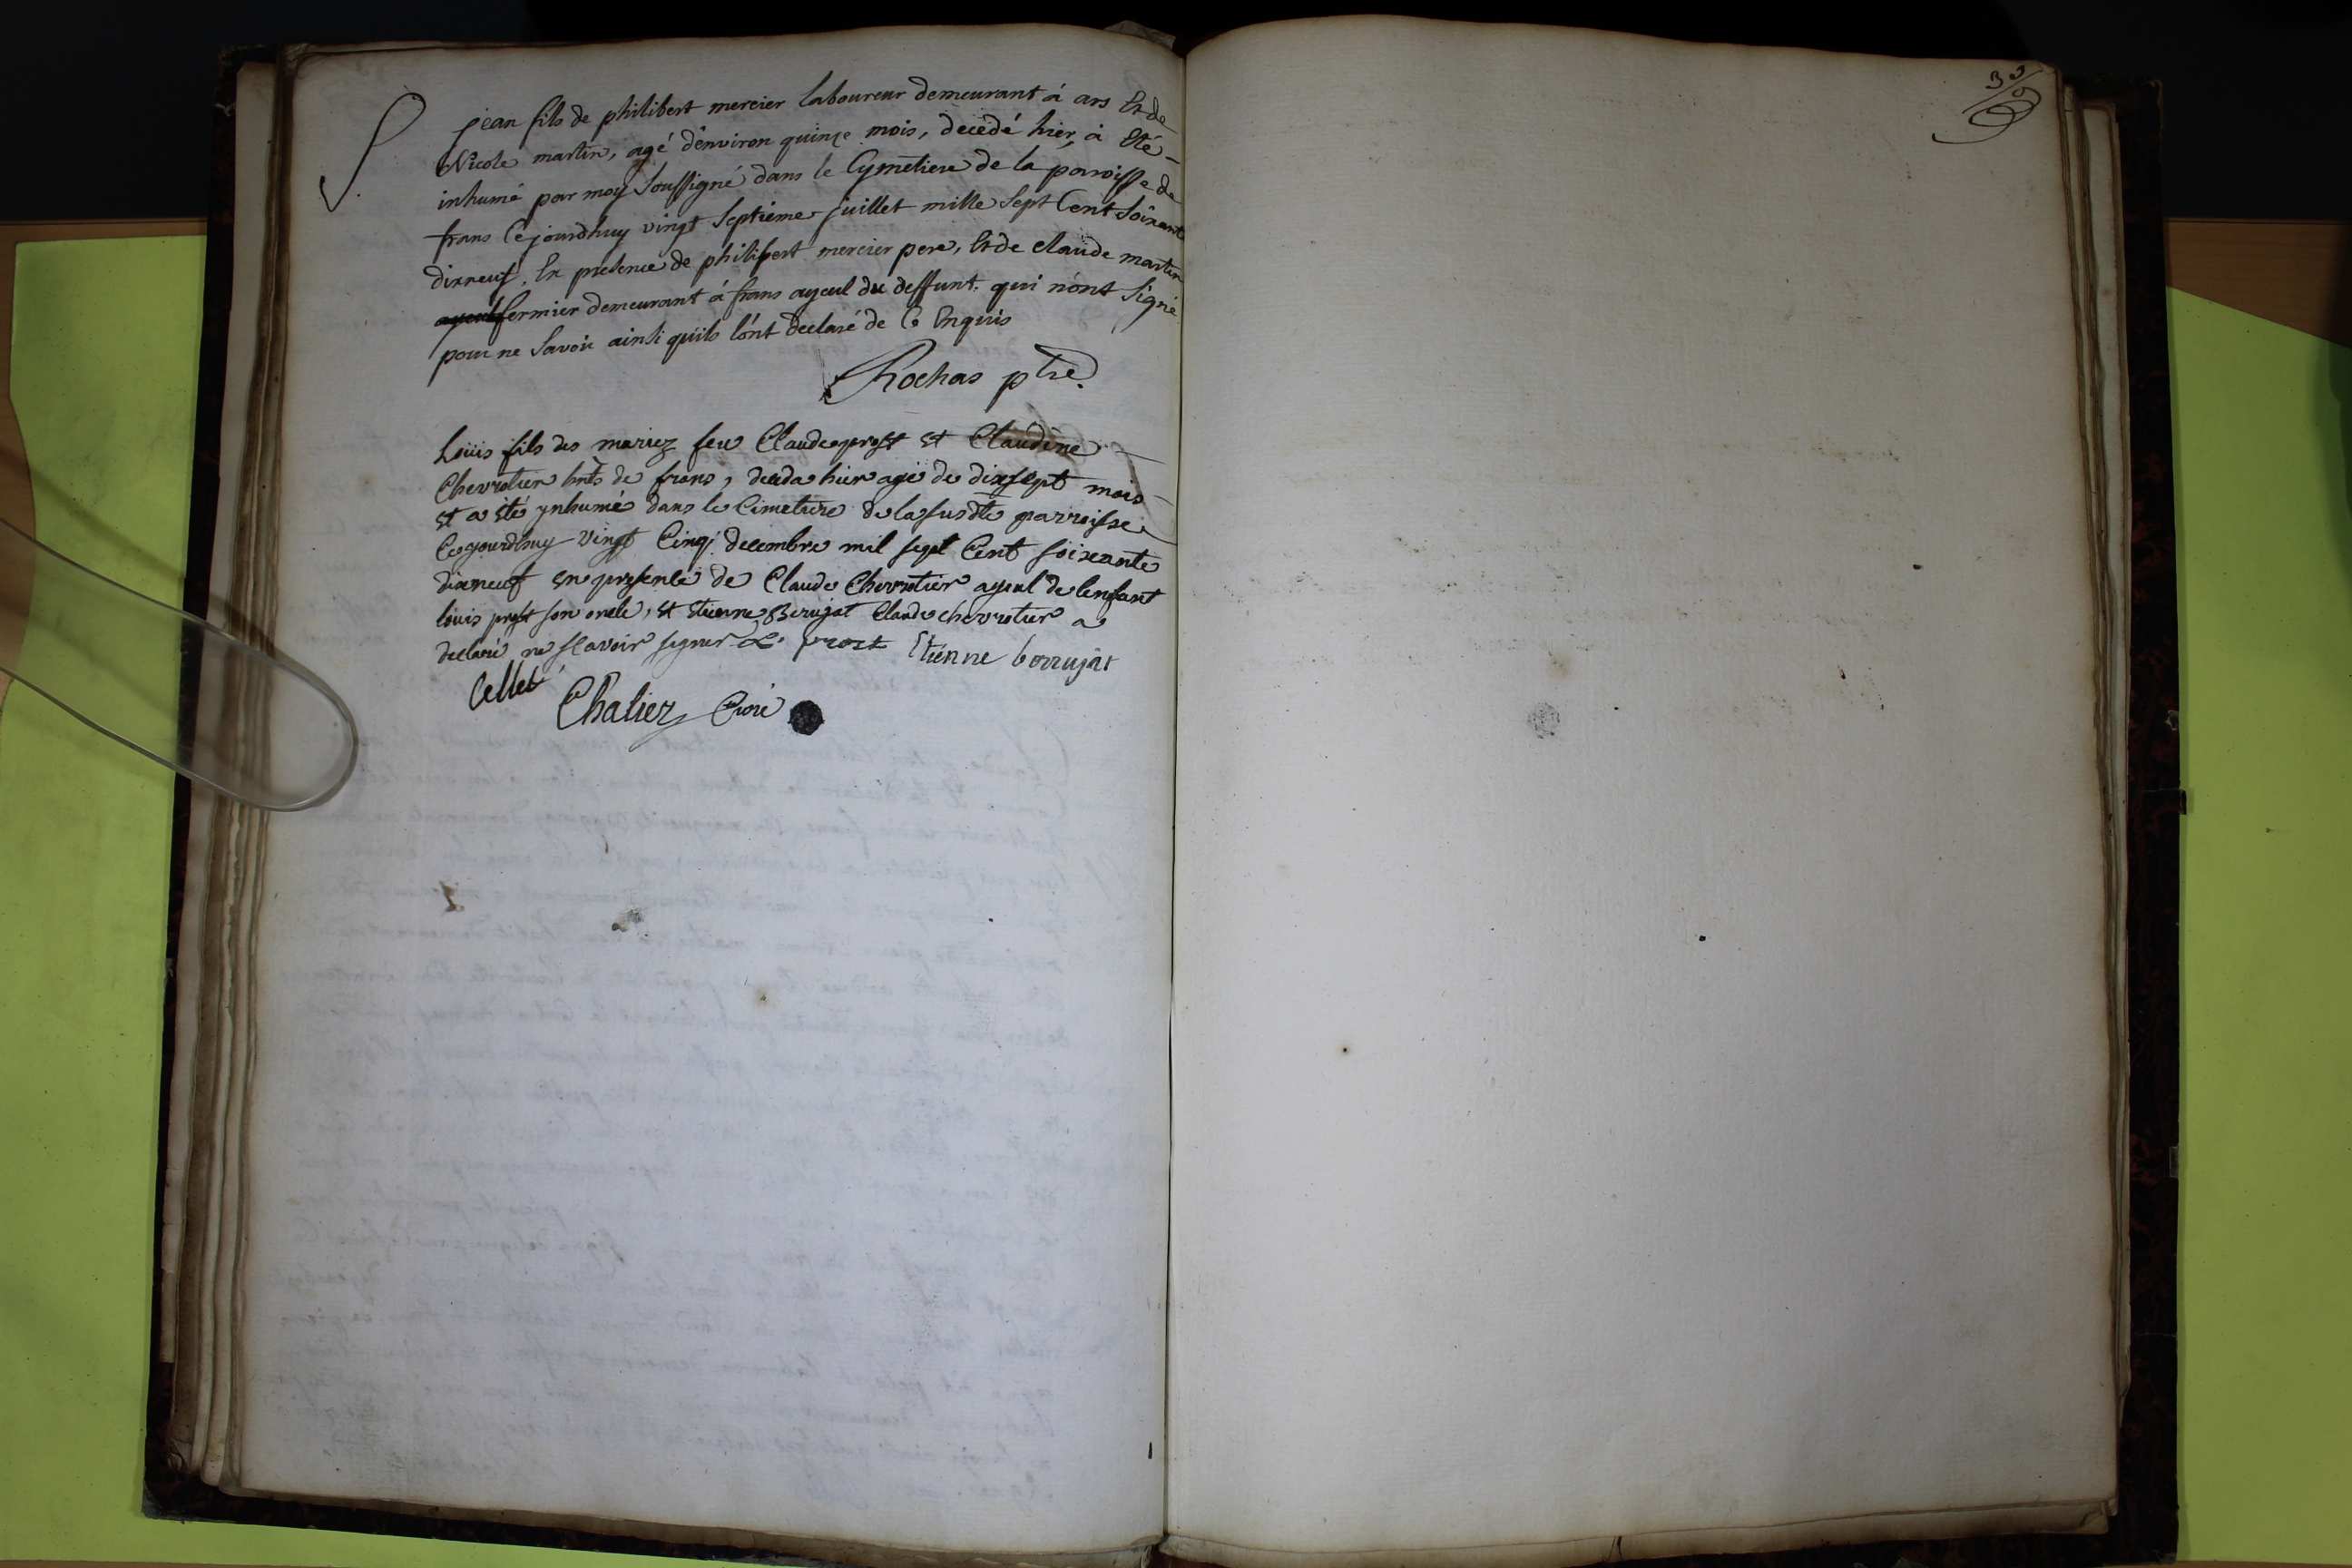 jean fils de philibert mercier laboureur demeurant à ars Et de
Nicole martin, agé d'environ quinze mois, decedé hier, à Eté
inhumé par moy Soussigné dans le Cymetiere de la paroisse de
frans Cejourdhuy vingt Septieme juillet mille Sept Cent Soixante
dixneuf. En presence de philibert mercier pere, Et de claude martin
ayeul fermier demeurant á frans ayeul du deffunt. qui n'ont Signé
pour ne Savoir ainsi quils l'ont declaré de Ce Enquis
Rochas ptre.
Loüis fils des mariez feu Claude prost et Claudine
Chevrotier hnts de frans, deceda hier agé de dixsept mois
et a eté ynhumé dans le Cimetiere de la susdte parroisse
Cejourdhuy vingt Cinq decembre mil sept Cent soixante
dixneuf en presence de Claude Chevrotier ayeul de lenfant
louis prost son oncle, et etienne Berujat Claude chevrotier a
declaré ne scavoir signer L. prost Etienne berrujat
Collet
Chaliez Curé
39